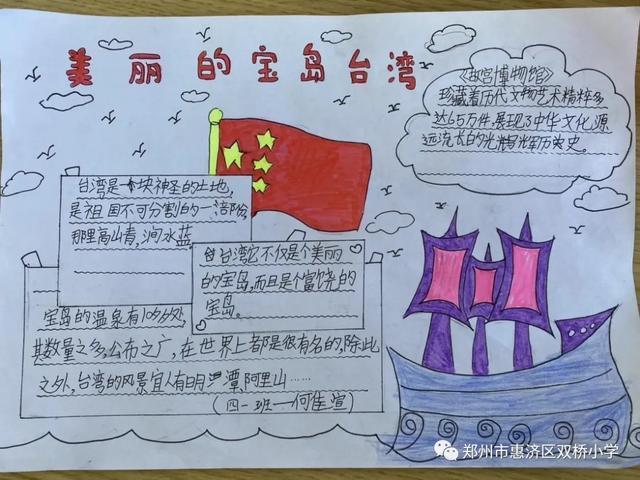 美丽的宝岛台湾
《故宫博物馆》
珍藏着历代文物艺术精粹多
达65万件,展现了中华文化源
远流长的光辉历史。
台湾是一块神圣的土地,
是祖国不可分割的一部份,
那里高山青,涧水蓝。
台湾它不仅是个美丽
的宝岛,而且是个富饶的
宝岛。
宝岛的温泉有10多处,
其数量之多,公布之广,在世界上都是很有名的,除此
之外,台湾的风景宜人有日月潭,阿里山……
(四一班——何佳萱)
郑州市惠济区双桥小学